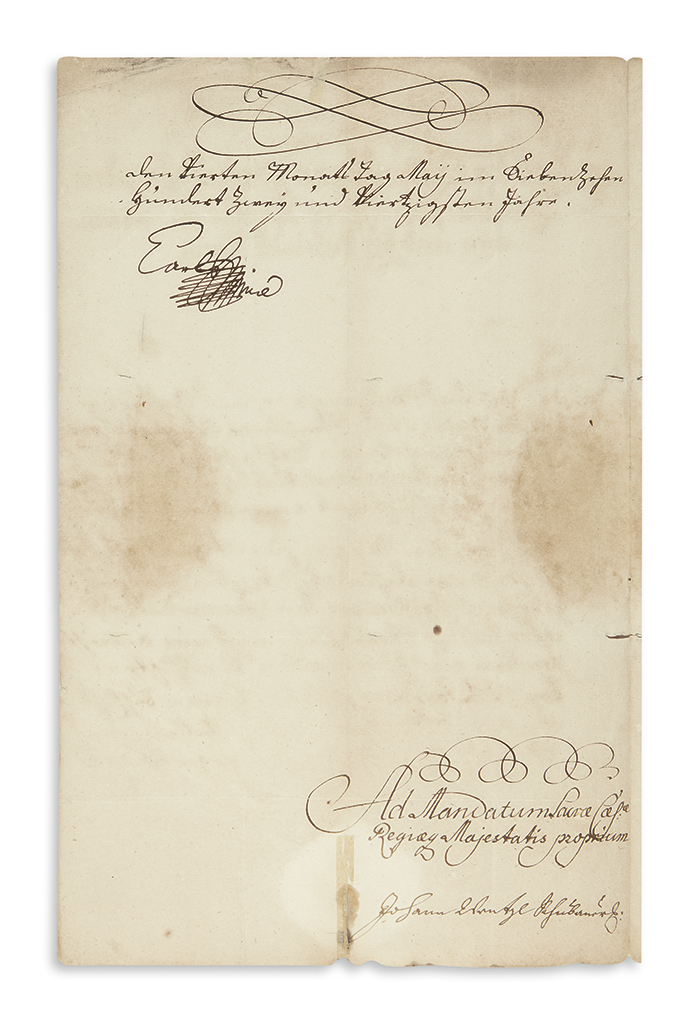 den Vierten Monats Tag Maij im Siebenzehen
Hundert Zweÿ und Viertzigsten Jahre.
Carl
Ad Mandatum Sacræ Cæs:æ
Regiæq Majestatis proprium
Johann Wentzl